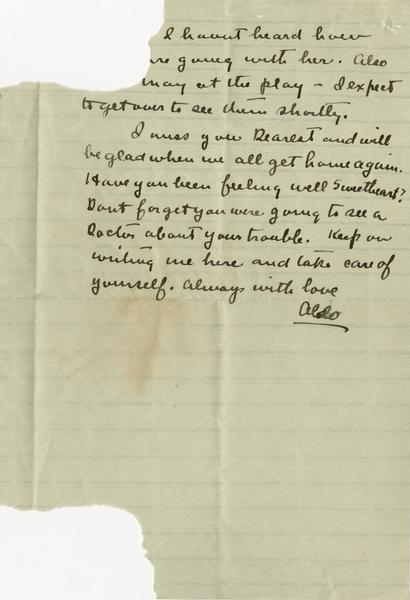 I havnt heard how
going with her. Also
may at the play – I expect
to get over to see them shortly.
I miss you Dearest and will
be glad when we all get home again.
Have you been feeling well Sweetheart?
Dont forget you were going to see a
Doctor about your trouble. Keep on
writing me here and take care of
yourself. Always with love
Aldo